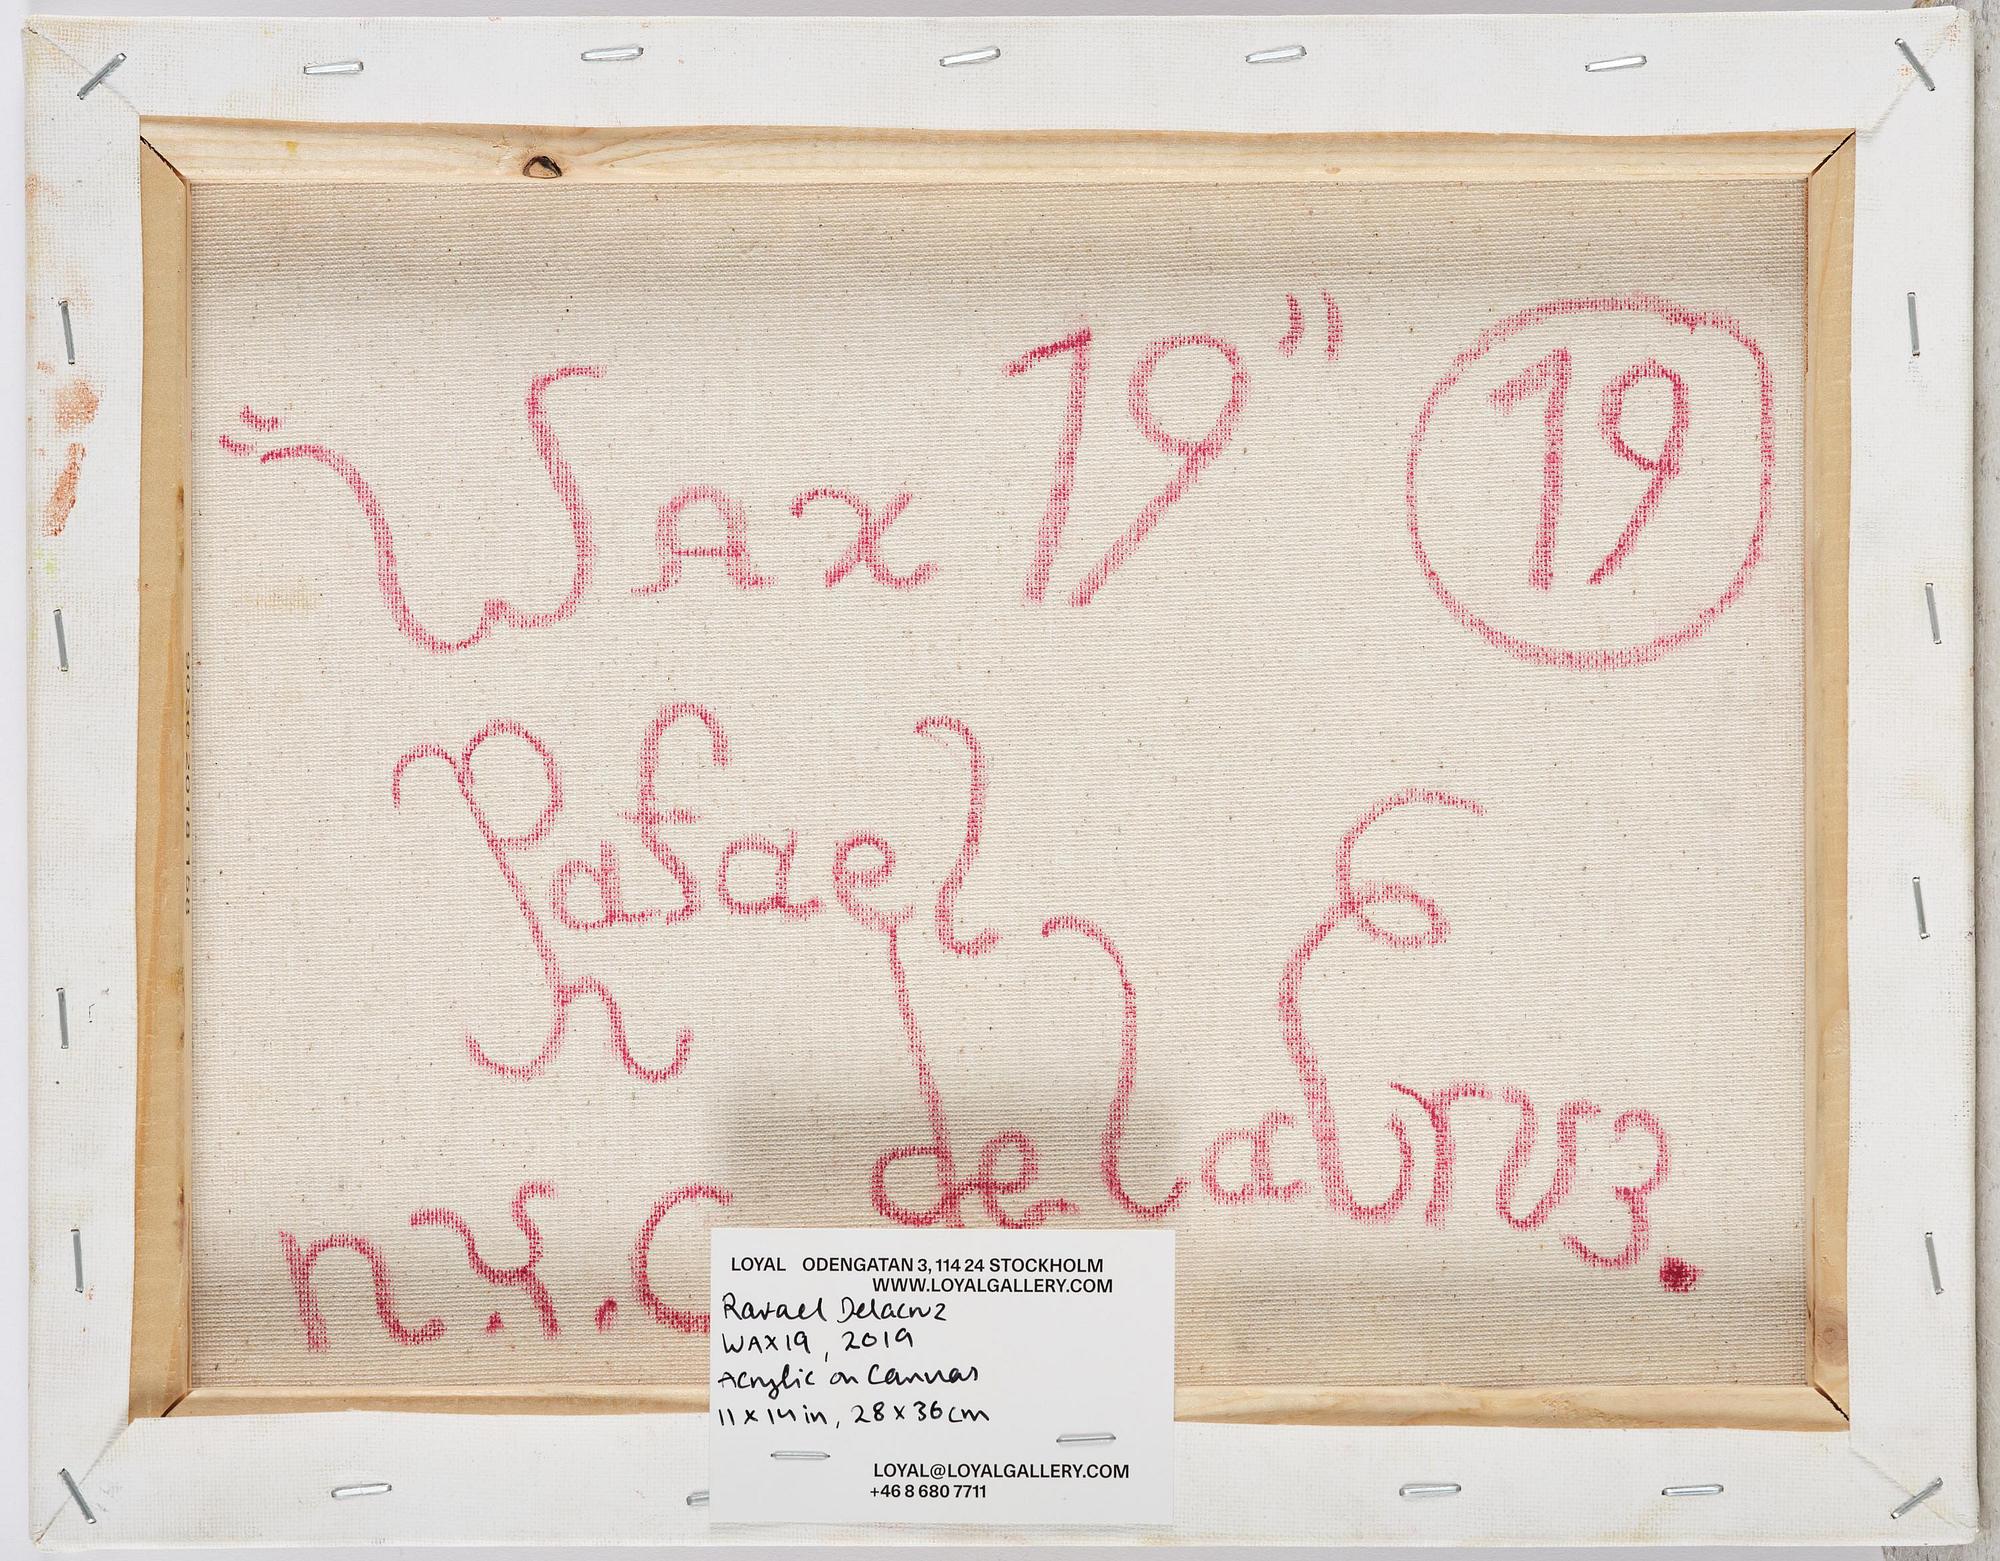 "Wax 19" 19
Rafael
de la Cruz.
n.Y.C
LOYAL ODENGATAN 3, 114 24 STOCKHOLM
WWW.LOYALGALLERY.COM
Rafael Delacruz
WAX19, 2019
Acrylic on Canvas
11 x 14 in, 28 x 36 cm
LOYAL@LOYALGALLERY.COM
+46 8 680 7711